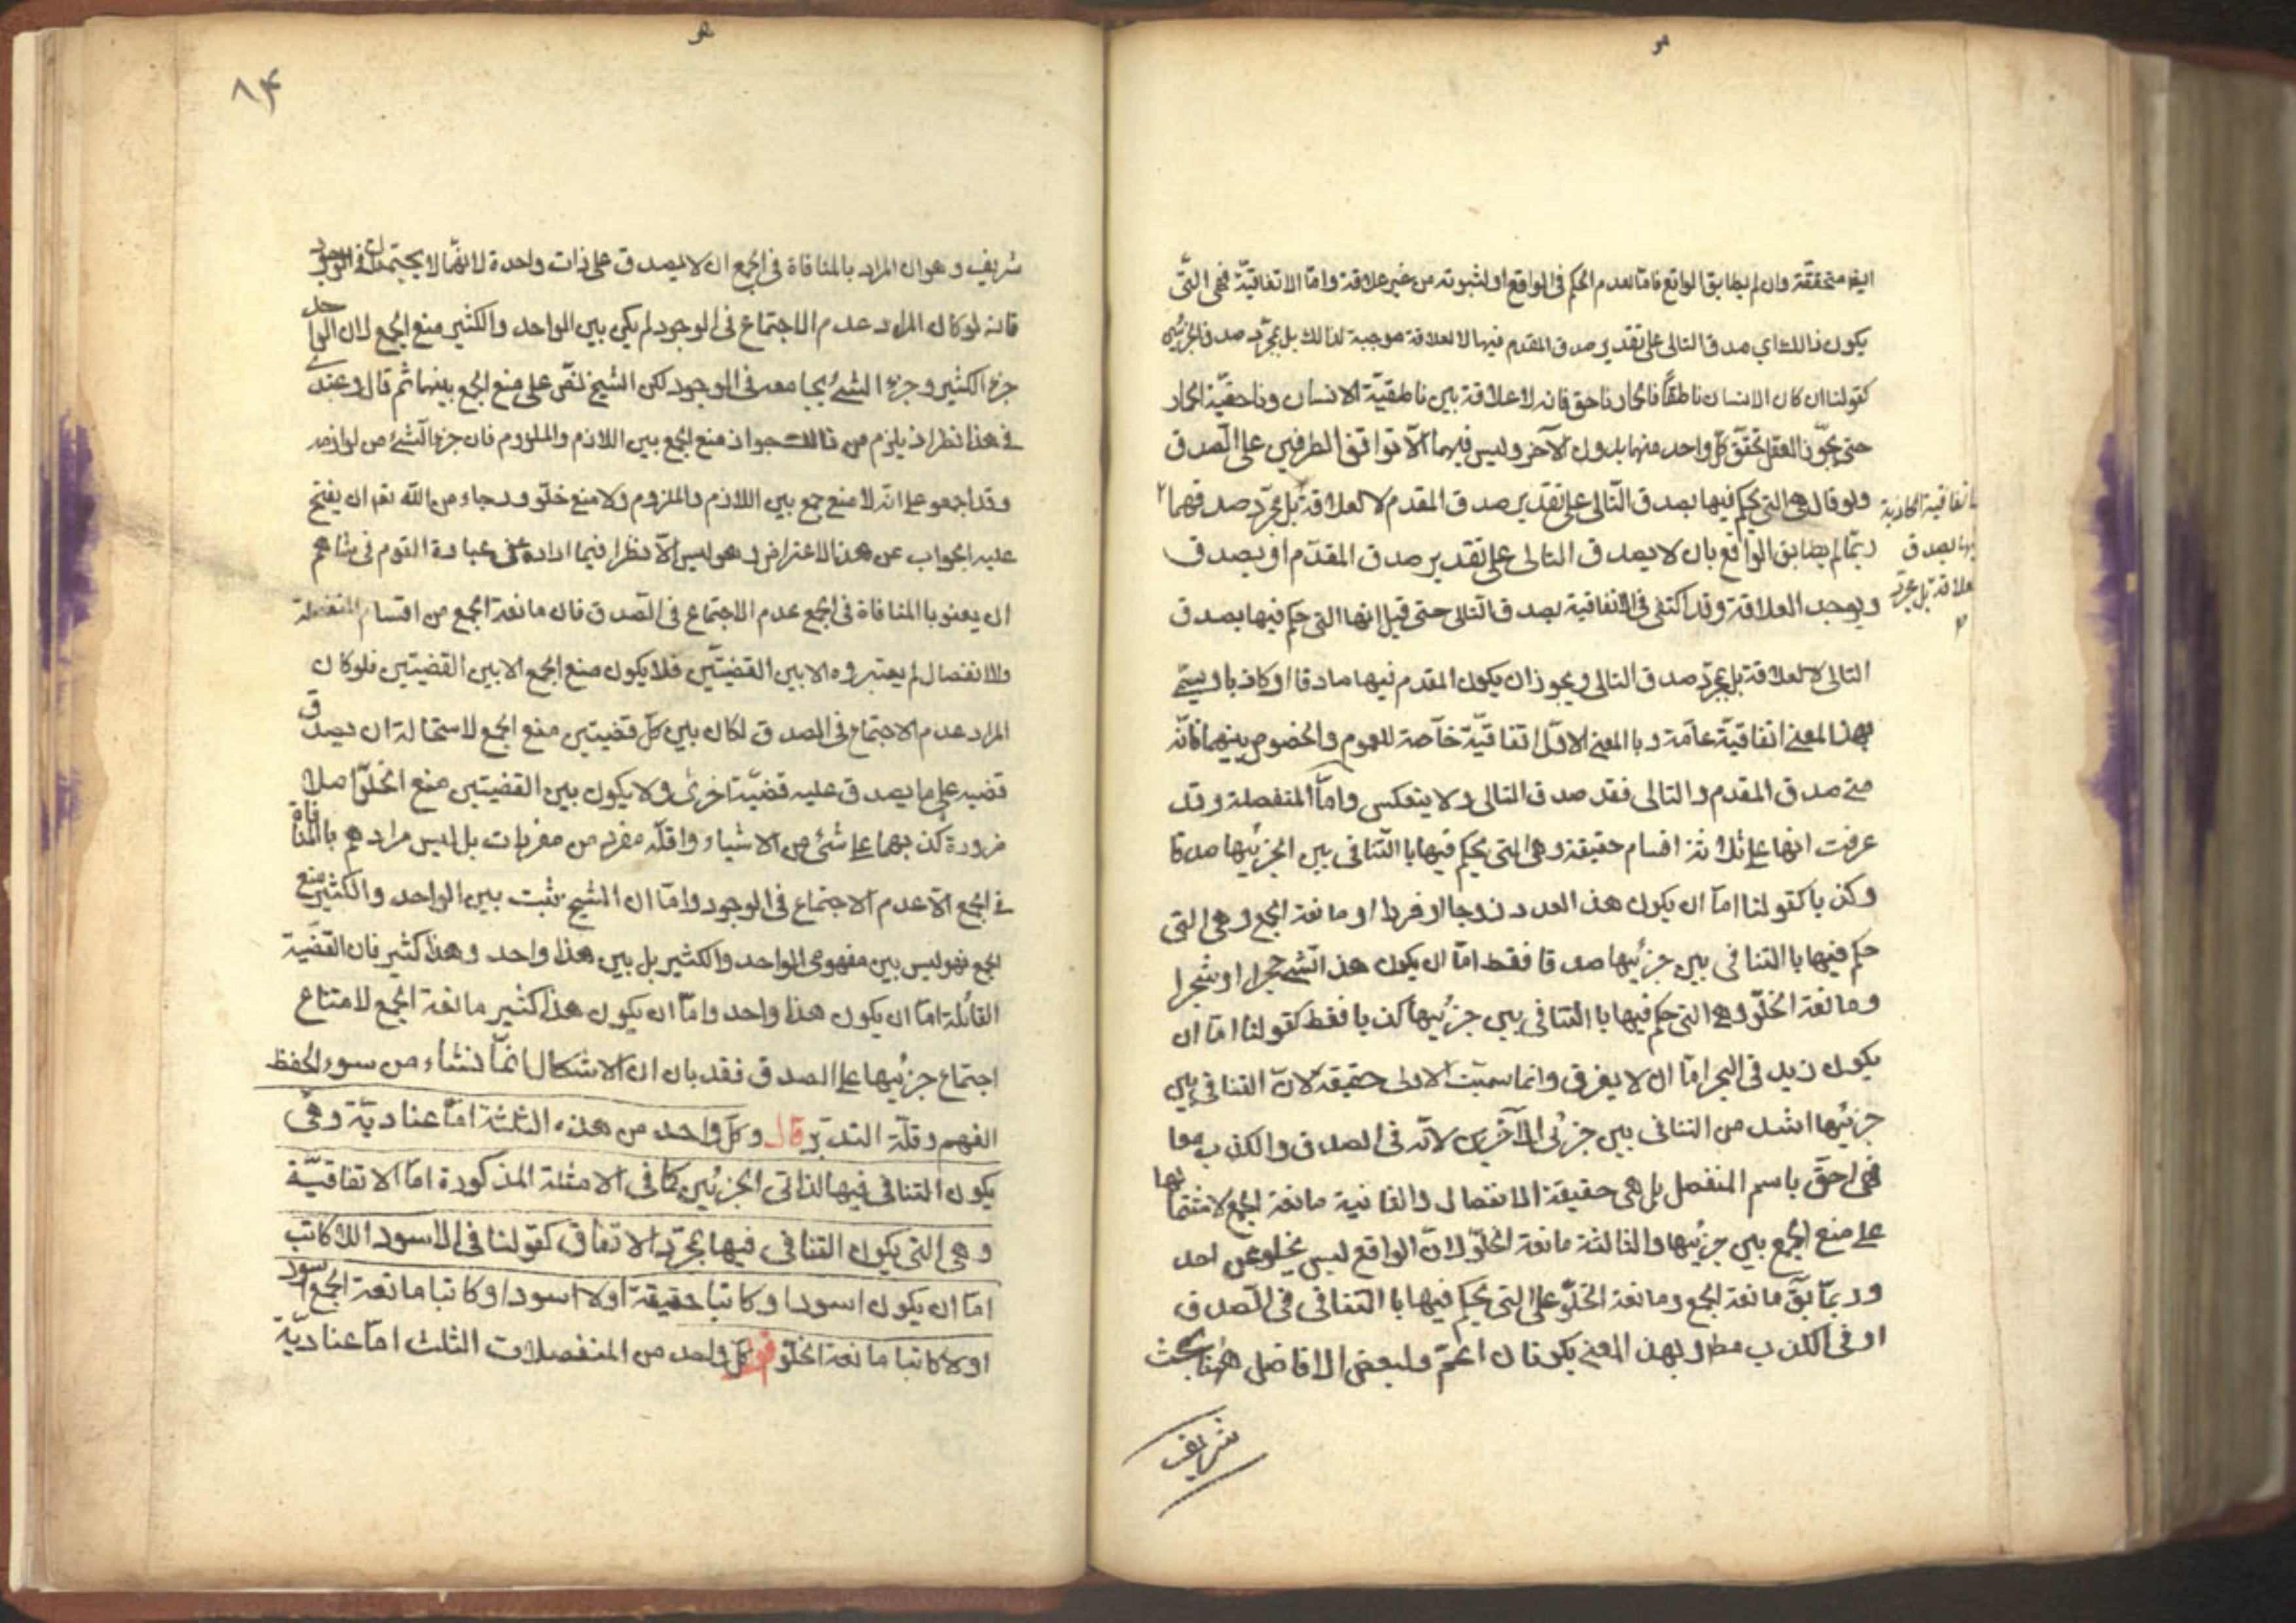 ايضا متحققة وان لم يطابق الواقع فاما لعدم الحكم فى الواقع او لثبوته من غير علاقة واما الاتفاقيّة فهى التى
يكون ذالك اي صدق التالى على تقدير صدق المقدم فيها لا لعلاقة موجبة لذالك بل بمجرّد صدق الجزئين
كقولنا ان كان الانسان ناطقًا فالحمار ناهق فانه لا علاقة بين ناطقيّة الانسان وناهقيّة الحمار
حتى يجوّز العقل تحقق كلّ واحد منهما بدون الآخر وليس فيهما الّا توافق الطرفين على الصدق
ولو قال هى التى يحكم فيها بصدق التّالى على تقدير صدق المقدم لا لعلاقة بل بمجرّد صدقهما
ربّما لم يطابق الواقع بان لا يصدق التالى على تقدير صدق المقدّم او يصدق
ويوجد العلاقة وقد اكتفى فى الاتفاقية بصدق التالى حتى قيل انها التى حكم فيها بصدق
التالى لا لعلاقة بل بمجرّد صدق التالى ويجوز ان يكون المقدم فيها صادقا او كاذبا ويسمّى
بهذا المعنى اتفاقيّة عامّة وبالمعنى الاوّل اتفاقيّة خاصّة للعموم والخصوص بينهما فانّه
متى صدق المقدم والتالى فقد صدق التالى ولا ينعكس وامّا المنفصلة وقد
عرفت انها على ثلاثة اقسام حقيقة وهى التى يحكم فيها بالتنافى بين الجزئيها صدقا
وكذبا كقولنا امّا ان يكون هذا العدد زوجا او فردا او مانعة الجمع وهى التى
حكم فيها بالتنافى بين جزئيها صدقا فقط امّا ان يكون هذا الشئ حجرا او شجرا
ومانعة الخلوّ وهى التى حكم فيها بالتنافى بين جزئيها كذبا فقط كقولنا امّا ان
يكون زيد فى البحر امّا ان لا يغرق وانما سميّت الاولى حقيقة لانّ التنافى بين
جزئيها اشد من التنافى بين جزئى الآخرين لانّه فى الصدق والكذب معا
فهى احقّ باسم المنفصل بل هى حقيقة الانفصال والثانية مانعة الجمع لاشتمالها
على منع الجمع بين جزئيها والثالثة مانعة الخلوّ لانّ الواقع ليس يخلو عن احد
وربّما يقّ مانعة الجمع ومانعة الخلوّ على التى يحكم فيها بالتنافى فى الصدق
او فى الكذب مطـ وبهذا المعنى يكونان اعمّ ولبعض الافاضل ههنا بحث
شريف
اتفاقية الكاذبة
بصدق
علاقة بل بمجرّد
٨٤
شريف وهو ان المراد بالمنافاة فى الجمع ان لا يصدق على ذات واحدة لا انهما لا يجتمعان فى الوجود
فانه لو كان المراد عدم الاجتماع فى الوجود لم يكن بين الواحد والكثير منع الجمع لان الواحد
جزء الكثير وجزء الشئ يجامعه فى الوجود لكن الشيخ نصّ على منع الجمع بينهما ثم قال وعندى
فى هذا نظر اذ يلزم من ذالك جواز منع الجمع بين اللازم والملزوم فان جزء الشئ من لوازمه
وقد اجمعو على انّه لا منع جمع بين اللازم والملزوم ولا منع خلوّ ورجاء من الله تعـ ان يفتح
عليه الجواب عن هذا الاعتراض وهو ليس الّا نظرا فيما اراده من عبارة القوم فى
ان يعنو بالمنافاة فى الجمع عدم الاجتماع فى الصدق فان مانعة الجمع من اقسام المنفصلة
والانفصال لم يعتبروه الا بين القضيتين فلا يكون منع الجمع الا بين القضيتين فلو كان
المراد عدم الاجتماع فى الصدق لكان بين كلّ قضيتين منع الجمع لاستحالة ان يصدق
قضيه على ما يصدق عليه قضيّة اخرى ولا يكون بين القضيتين منع الخلوّ اصلا
ضرورة كذبهما على شئ من الاشياء واقلّه مفرد من مفردات بل ليس مرادهم بالمنافاة
فى الجمع الّا عدم الاجتماع فى الوجود وامّا ان الشيخ يثبت بين الواحد والكثير منع
الجمع فهو ليس بين مفهومى الواحد والكثير بل بين هذا واحد وهذا كثير فان القضّية
القائلة امّا ان يكون هذا واحد وامّا ان يكون هذا كثير مانعة الجمع لامتناع
اجتماع جزئيها على الصدق فقد بان ان الاشكال انمّا نشاء من سوء الحفظ
الفهم وقلّة التدبّر قال وكلّ واحد من هذه الثلثة امّا عناديّة وهى
يكون التنافى فيها لذاتى الجزئين كما فى الامثلة المذكورة امّا الاتفاقيّة
وهى التى يكون التنافى فيها بمجرّد الاتفاق كقولنا فى الاسود اللاكاتب
امّا ان يكون اسود او كاتبا حقيقة او لا اسود او كاتبا مانعة الجمع او اسود
او لا كاتبا مانعة الخلوّ قو كلّ واحد من المنفصلات الثلث امّا عناديّة